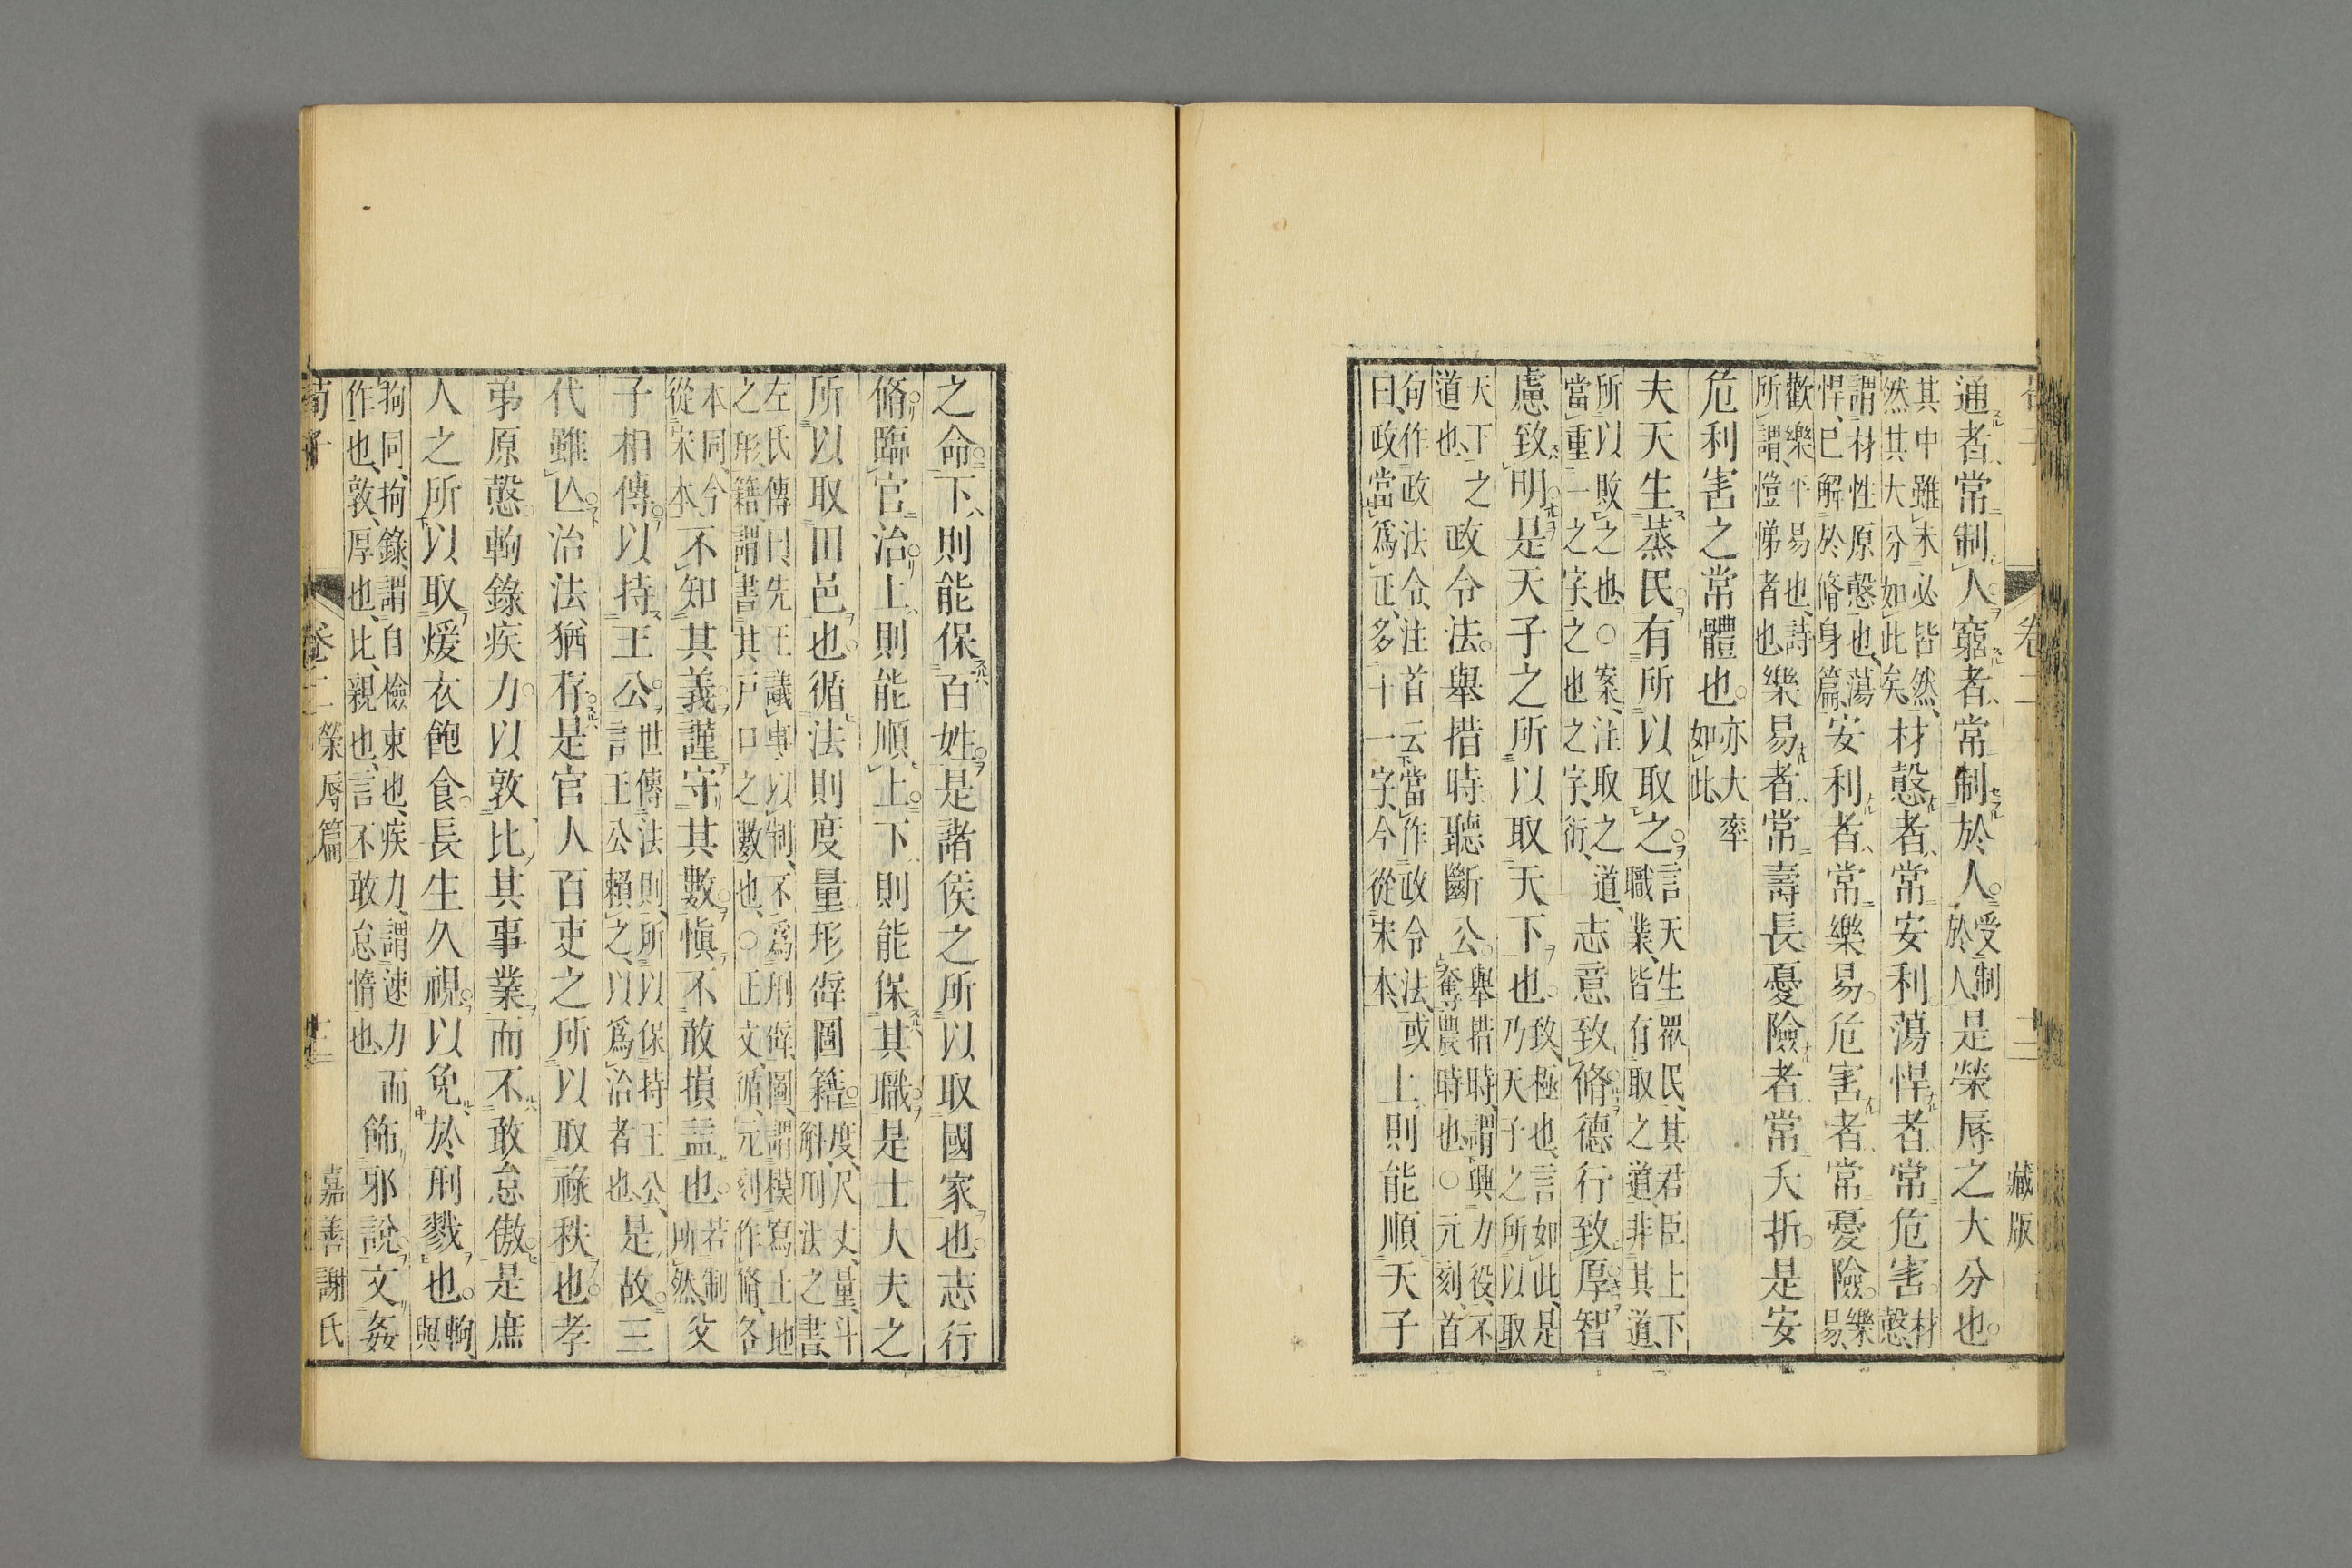 荀子 卷二 十二 藏版
通者常制人窮者常制於人受制於人是榮辱之大分也
其中雖未必皆然然其大分如此矣材愨者常安利蕩悍者常危害材愨
謂材性原愨也蕩悍已解於脩身篇安利者常樂易危害者常憂險樂易
歡樂平易也詩所謂愷悌者也樂易者常壽長憂險者常夭折是安
危利害之常體也亦大率如此
夫天生蒸民有所以取之言天生衆民其君臣上下職業皆有取之道非其道
所以敗之也○案注取之道當重一之字之也之字衍志意致脩德行致厚智
慮致明是天子之所以取天下也致極也言如此是乃天子之所以取
天下之道也政令法舉措時聽斷公舉措時謂興力役不奪農時也○元刻首
句作政法令注首云當作政令法或曰政當爲正多二十一字今從宋本上則能順天子
之命下則能保百姓是諸侯之所以取國家也志行
脩臨官治上則能順上下則能保其職是士大夫之
所以取田邑也循法則度量形辟圖籍度尺丈量斗斛刑法之書
左氏傳曰先王議事以制不爲刑辟圖謂模寫土地之形籍謂書其戶口之數也○正文循元刻作脩各
本同今從宋本不知其義謹守其數愼不敢損益也若制所然父
子相傳以持王公世傳法則所以保持王公言王公賴之以爲治者也是故三
代雖亾治法猶存是官人百吏之所以取祿秩也孝
弟原愨軥錄疾力以敦比其事業而不敢怠傲是庶
人之所以取煖衣飽食長生久視以免於刑戮也軥與
拘同拘錄謂自儉束也疾力謂速力而作也敦厚也比親也言不敢怠惰也飾邪說文姦
荀子 卷二 榮辱篇 十二 嘉善謝氏